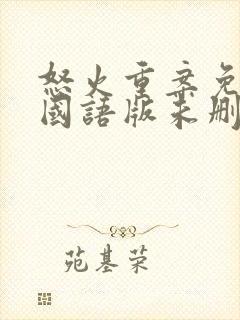 怒火重案免
國語版未刪
苑基荣